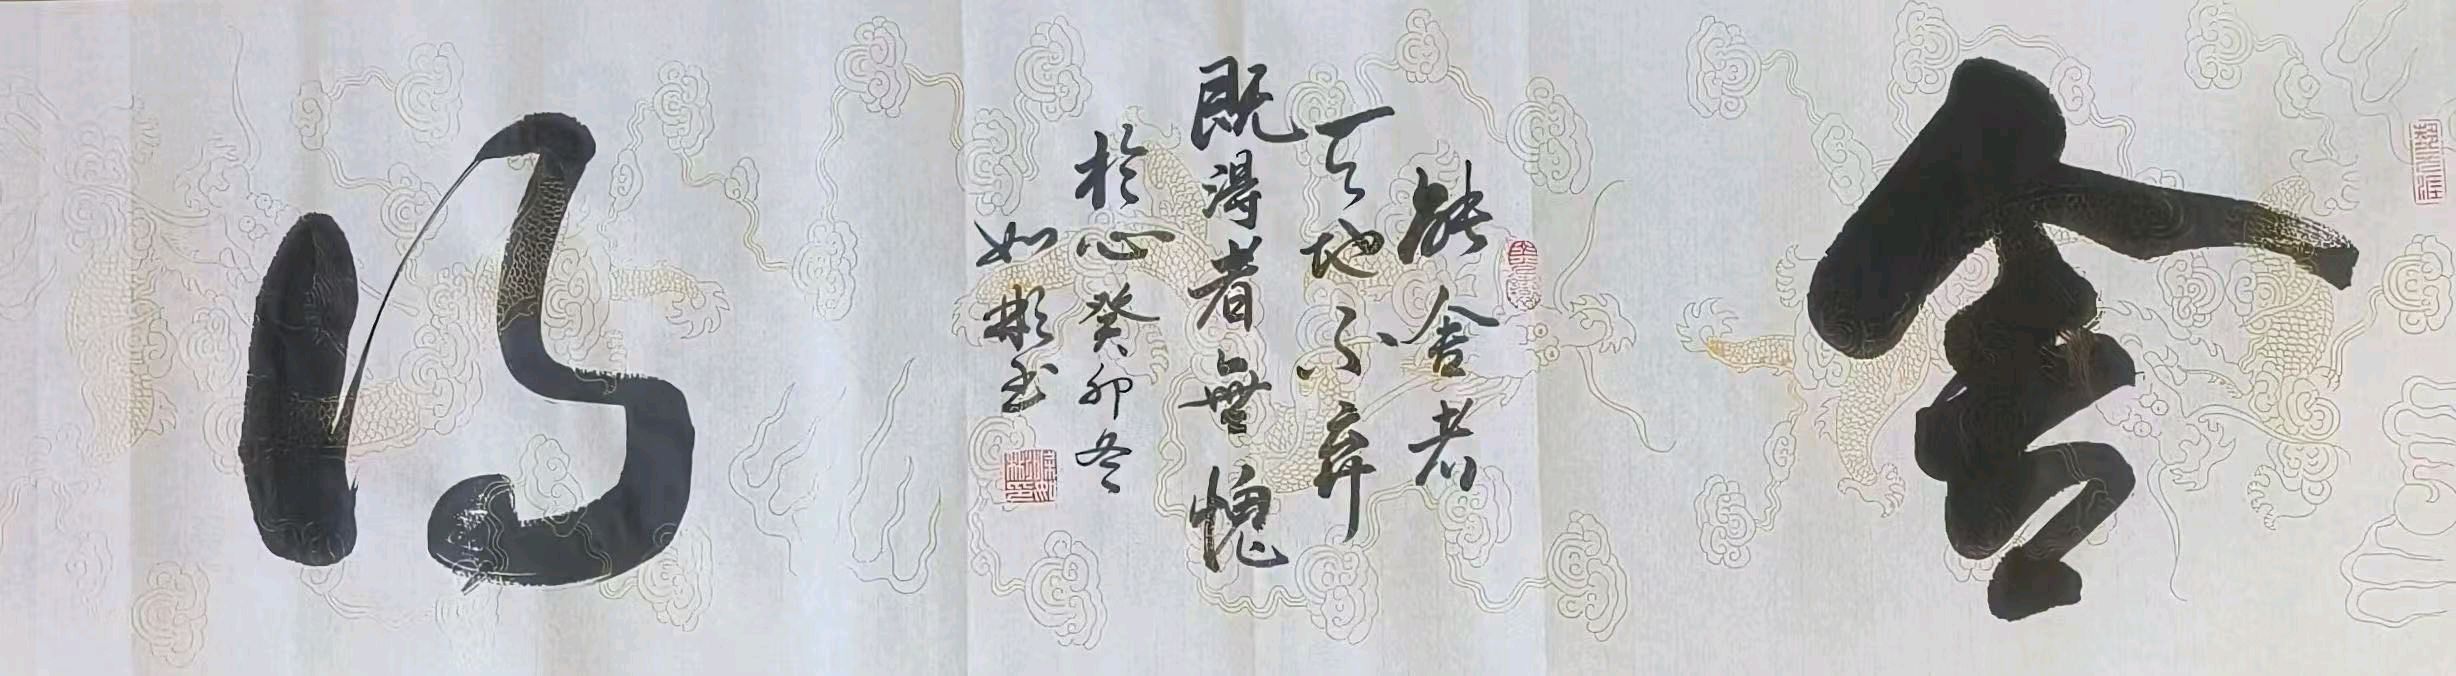 舍
能舍者
天地不弃
既得者無愧
於心癸卯冬
如彬书
得